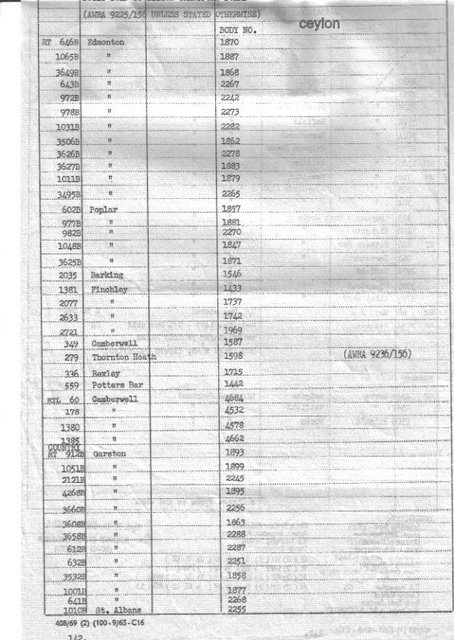 (AWRA 9225/156 UNLESS STATED OTHERWISE)
BODY NO. ceylon
RT 646B Edmonton 1870
1065B " 1887
3649B " 1868
643B " 2267
972B " 2242
978B " 2273
1031B " 2282
3506B " 1862
3626B " 2278
3627B " 1883
1011B " 1879
3495B " 2265
602B Poplar 1857
977B " 1881
982B " 2270
1048B " 1847
3625B " 1871
2035 Barking 1546
1381 Finchley 1433
2077 " 1737
2633 " 1742
2721 " 1969
349 Camberwell 1587
279 Thornton Heath 1598 (AWRA 9236/156)
336 Bexley 1715
559 Potters Bar 1442
RTL 60 Camberwell 4684
178 " 4532
1380 " 4578
1385 " 4662
COUNTRY
RT 912B Garston 1893
1051B " 1899
2121B " 2245
4268B " 1895
3660B " 2256
3608B " 1863
3658B " 2288
612B " 2287
632B " 2251
3532B " 1858
1001B " 1877
641B " 2268
1010B St. Albans 2255
408/69 (2) (100-9/63-C16
142.